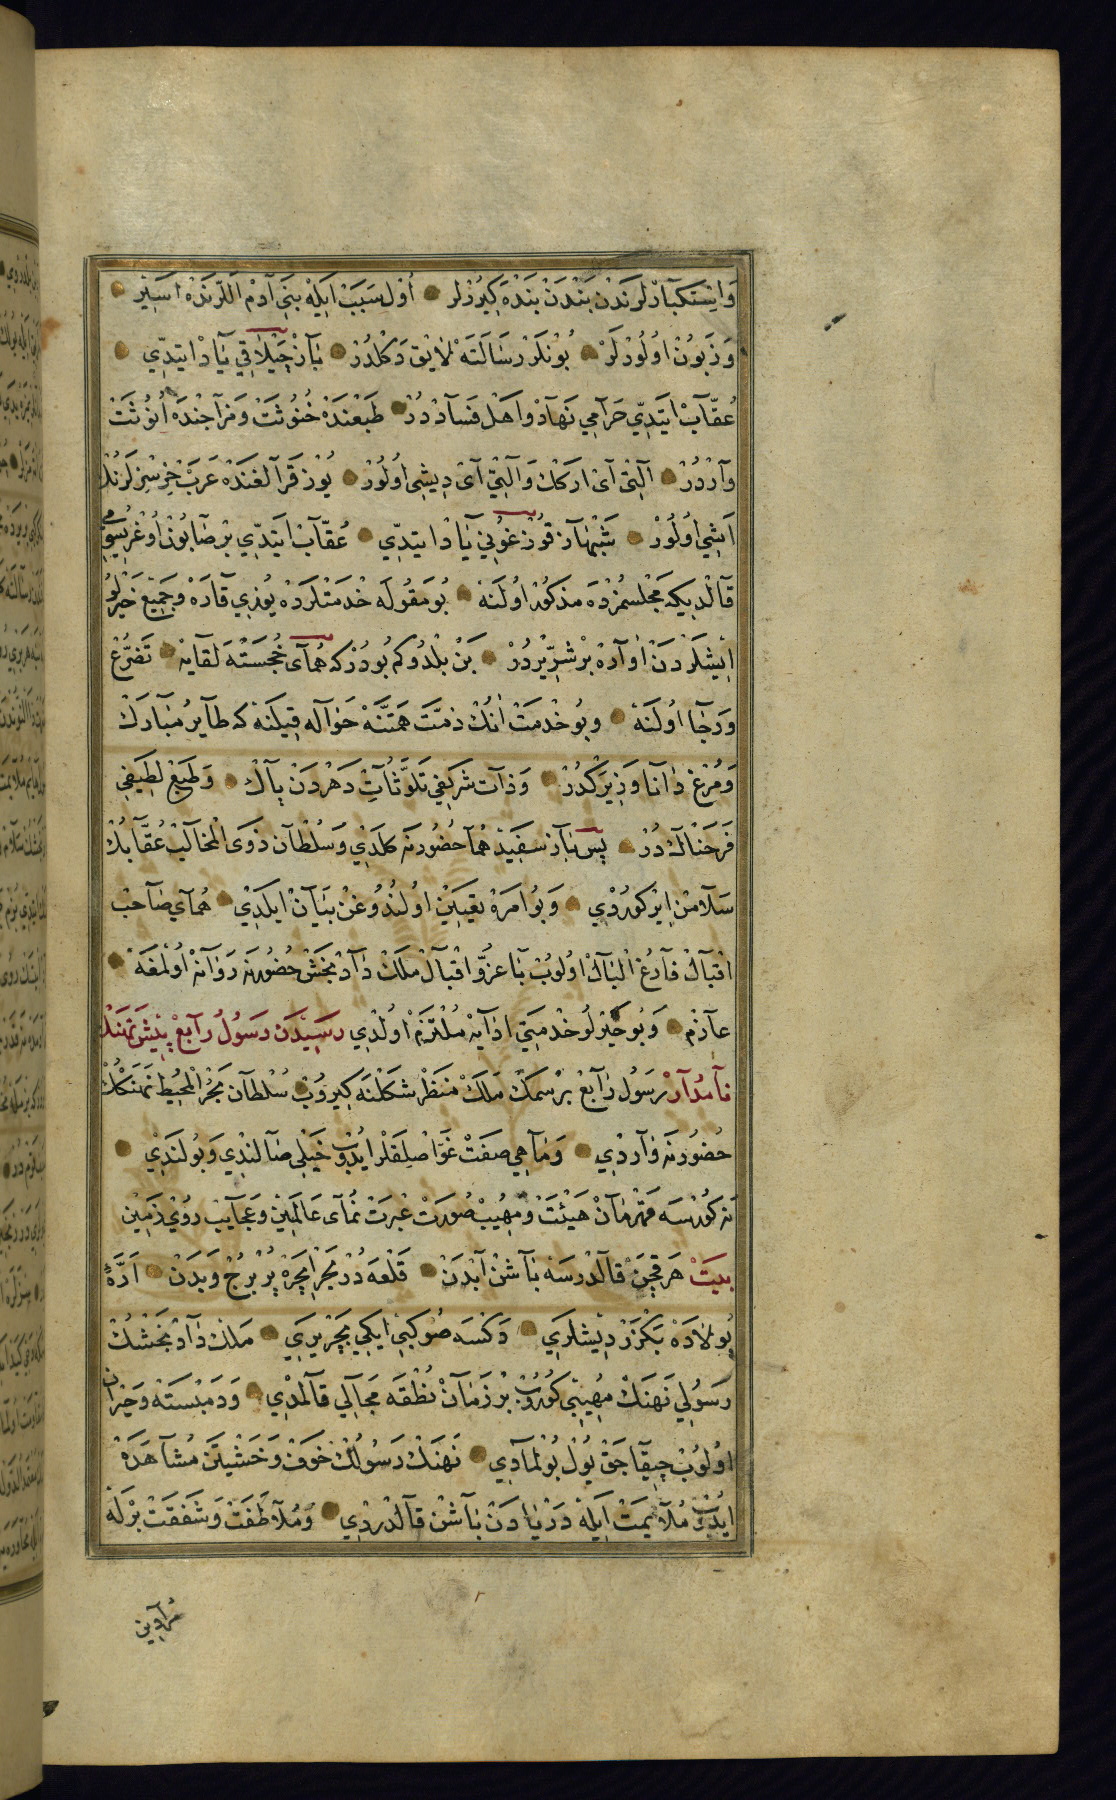 وَاِسْتِكْبَارْلَرِنْدَنْ بَنْدَنْ بَنْدَهْ كِيرُرْلَرْ اُوْل سَبَبْ اِيلَهْ بَنِي آدَمْ اَللَّرِنْدَهْ اَسِيرْ
وَزَبُونْ اُولُورْلَرْ بُونْلَرْ رِسَالَتَهْ لَايِقْ دَكُلْدُرْ بَازْ چَيْلَاقِي يَادْ اِيتْدِي
عُقَابْ اِيتْدِي حَرَامِي نَهَادْ وَاَهْلِ فَسَادْدُرْ طَبْعِنْدَهْ خُنُوثَتْ وَمِزَاجِنْدَهْ اُنُوثَتْ
وَارْدُرْ آلْتِي آيْ اَرْكَكْ وَآلْتِي آيْ دِيشِي اُولُورْ يُوزْ قَرَالِغِنْدَهْ عَرَبْ خِرْسِزْلَرِنُكْ
اَشِي اُولُورْ شَهْبَازْ قُوزْغُونِي يَادْ اِيتْدِي عُقَابْ اِيتْدِي بِرْ صَابُونْ اُوغْرِيسِي مِي
قَالْدِيكِه مَجْلِسِمُزْدَه مَذْكُورْ اُولَنَهْ بُو مَقُولَه خِدْمَتْلَرْدَهْ يُوزِي قَارَهْ وَجَمِيعْ خَيْرْلُو
اِيشْلَرْدَنْ آوَارَهْ بِرْ شِرِّيرْدُرْ بَنْ بِلْدُوكُمْ بُودُرْكِه هُمَايِ خُجَسْتَهْ لِقَايَهْ تَضَرُّعْ
وَرَجَا اُولَنَهْ وَبُو خِدْمَتْ اَنُكْ ذِمَّتِ هِمَّتَنَهْ حَوَالَه قِيلَنَهْ كِه طَايِرِ مُبَارَكْ
وَمُرْغِ دَانَا وَزِيرَكْدُرْ وَذَاتِ شَرِيفِي تَلَوُّثَاتِ دَهْرْدَنْ پَاكْ وَطَبْعِ لَطِيفِي
فَرَحْنَاكْدُرْ پَسْ بَازِ سَفِيدْ هُمَا حُضُورِنَه كَلْدِي وَسُلْطَانِ ذَوِي الْمَخَالِيبْ عُقَابُكْ
سَلَامِنْ اِيرْكُورْدِي وَبُو اَمْرَهْ تَعْيِينْ اُولُنْدُوغِنْ بَيَانْ اَيلَدِي هُمَايِ صَاحِبْ
اِقْبَالْ فَارِغُ الْبَالْ اُولُوبْ بَا عِزّ وُ اِقْبَالْ مَلِكِ دَادْبَخْشْ حُضُورِنَه رَوَانَهْ اُولْمَغَهْ
عَازِمْ وَبُو خَيْرْلُو خِدْمَتِي اَدَايَه مُلْتَزِمْ اُولْدِي رَسِيدَنِ رَسُولِ رَابِعْ پِيشِ نَهَنْكْ
نَامْدَارْ رَسُولِ رَابِعْ بِرْ سَمَكِ مَلَكْ مَنْظَرْ شَكْلِنَه كِيرُوبْ سُلْطَانِ بَحْرِ الْمُحِيطْ نَهَنْكُكْ
حُضُورِنَه وَارْدِي وَمَاهِي صِفَتْ غَوَّاصْلِقْلَرْ اِيدُوبْ خَيْلِي صَالِنْدِي وَبُولَنْدِي
نَه كُورْسَه قَهْرَمَانْ هَيْئَتْ وَمُهِيبْ صُورَتْ عِبْرَتْ نُمَايِ عَالَمِينْ وَعَجَايِبِ رُويِ زَمِينْ
بَيتْ هَرْ قَچَنْ قَالْدُرْسَهْ بَاشِنْ آبْدَنْ قَلْعَه دُرْ بَحْرْ اِيچْرَهْ پُرْ بُرْجْ وَبَدَنْ اَرَّهْ
پُولَادَهْ بَكْزَرْ دِيشْلَرِي دَكْسَه صُوكِبِي اِيكِي بِيچَرْ يِرِي مَلِكِ دَادْبَخْشُكْ
رَسُولِي نَهَنْكِ مُهِيبِي كُورُوبْ بِرْ زَمَانْ نُطْقَه مَجَالِي قَالْمَدِي وَدَمْبَسْتَهْ وَحَيْرَانْ
اُولُوبْ چِيقَاجَقْ يُولْ بُولْمَادِي نَهَنْكْ رَسُولُكْ خَوْفْ وَخَشْيَتِنْ مُشَاهَدَهْ
اِيدُوبْ مُلَايَمَتْ اِيلَهْ دَرْيَادَنْ بَاشِنْ قَالْدُرْدِي وَمُلَاطَفَتْ وَشَفَقَتْ بِرْلَهْ